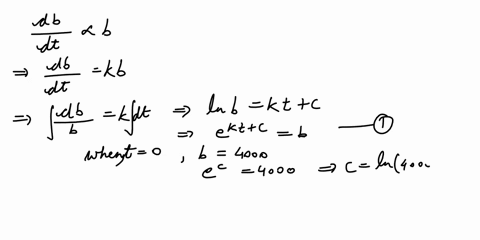 db/dt ∝ b
⇒ db/dt = kb
⇒ ∫ db/b = k∫dt ⇒ ln b = kt + c
⇒ e^(kt+c) = b —— ①
when t = 0, b = 4000
e^c = 4000 ⇒ c = ln(400